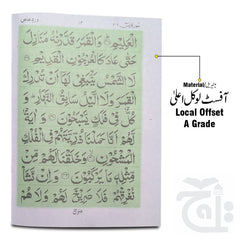 الْعَلِيْمِ وَالْقَمَرَ قَدَّرْنٰهُ مَنَازِلَ
حَتّٰى عَادَ كَالْعُرْجُوْنِ الْقَدِيْمِ
لَا الشَّمْسُ يَنْۢبَغِيْ لَهَاۤ اَنْ تُدْرِكَ
الْقَمَرَ وَلَا الَّيْلُ سَابِقُ النَّهَارِ وَ
كُلٌّ فِيْ فَلَكٍ يَّسْبَحُوْنَ وَاٰيَةٌ
لَّهُمْ اَنَّا حَمَلْنَا ذُرِّيَّتَهُمْ فِي الْفُلْكِ
الْمَشْحُوْنِ وَخَلَقْنَا لَهُمْ مِّنْ
مِّثْلِهٖ مَا يَرْكَبُوْنَ وَاِنْ نَّشَاْ
نُغْرِقْهُمْ فَلَا صَرِيْخَ لَهُمْ وَلَا هُمْ
Material
آفسٹ لوکل اعلیٰ
Local Offset
A Grade